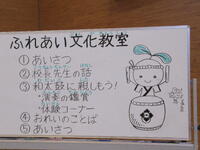 ふれあい文化教室
①あいさつ
②校長先生の話
③和太鼓に親しもう!
・演奏の鑑賞
・体験コーナー
④おれいのことば
⑤あいさつ